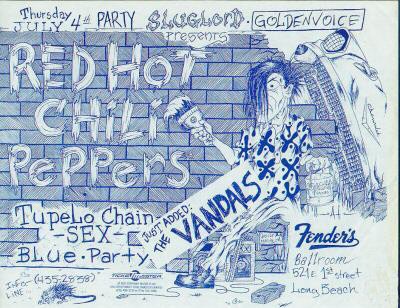 Thursday
JULY 4th PARTY
SLUGLORD · GOLDENVOICE
Presents
RED HOT
CHILI
PEPPERS
JUST ADDED:
THE VANDALS
Tupelo Chain
-SEX-
Blue·Party
INFO:
LINE
(435-2838)
TICKETMASTER
Fender's
Ballroom
521 E 1st street
Long Beach